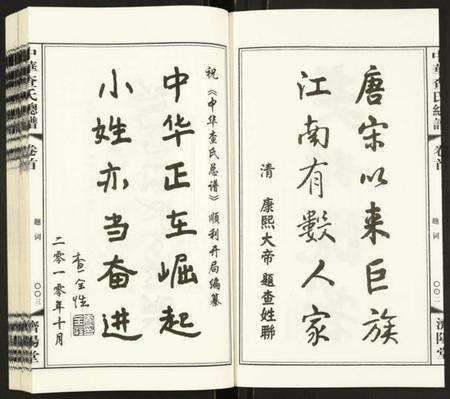 中華查氏總譜
卷首
題詞
〇〇二
濟陽堂
唐宋以来巨族
江南有數人家
清 康熙大帝 題查姓聯
祝《中华查氏总谱》顺利开局编纂
中华正在崛起
小姓亦当奋进
查全性
二零一零年十月
中華查氏總譜
卷首
題詞
〇〇三
濟陽堂